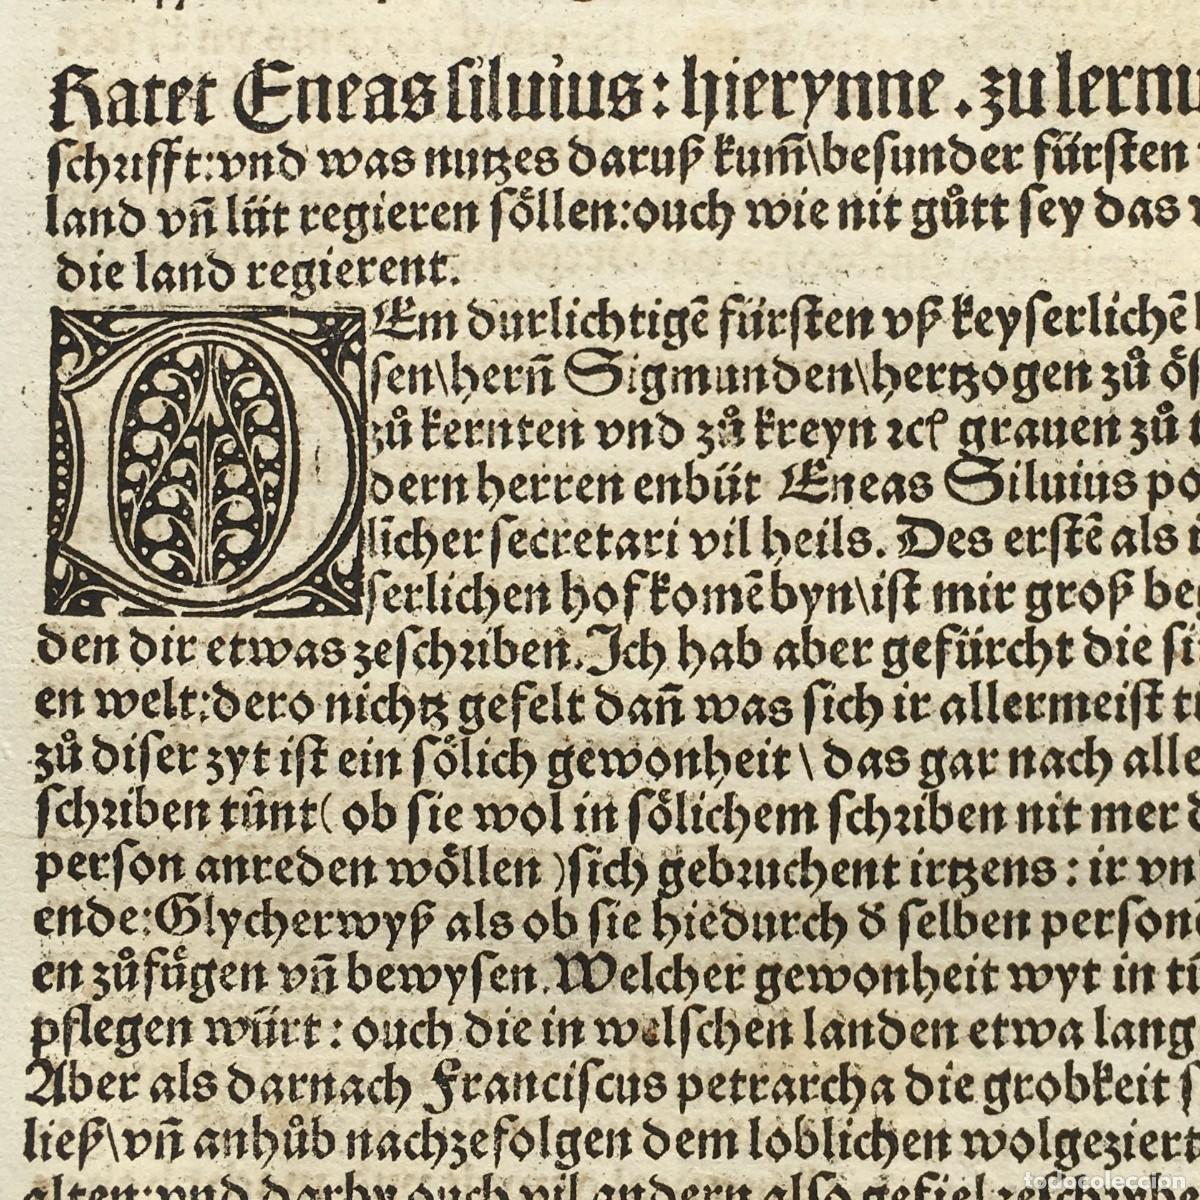 Ratet Eneas siluius: hierynne. zu lernu
schrifft: vnd was nutzes daruß kum̄\besunder fürsten
land vn̄ lüt regieren söllen: ouch wie nit gůtt sey das
die land regierent.
DEm durlichtigē fürsten vß keyserlichē
sen\hern̄ Sigmunden\hertzogen zů ös
zů kernten vnd zů kreyn ⁊cͭ grauen zů
dern herren enbüt Eneas Siluius po
licher secretari vil heils. Des erstē als
serlichen hof komē byn\ist mir groß be
den dir etwas zeschriben. Ich hab aber gefürcht die si
en welt: dero nichtz gefelt dan̄ was sich ir allermeist
zů diser zyt ist ein sölich gewonheit\das gar nach alle
schriben tůnt( ob sie wol in sölichem schriben nit mer
person anreden wöllen )sich gebruchent irtzens: ir vn
ende: Glycherwyß als ob sie hiedurch d̄ selben person
en zůfügen vn̄ bewysen. Welcher gewonheit wyt in
pflegen würt: ouch die in welschen landen etwa lang
Aber als darnach Franciscus petrarcha die grobkeit
ließ\vn̄ anhůb nachzefolgen dem loblichen wolgeziert
alten: vnd darby ouch vil andern also gefiel
todocoleccion